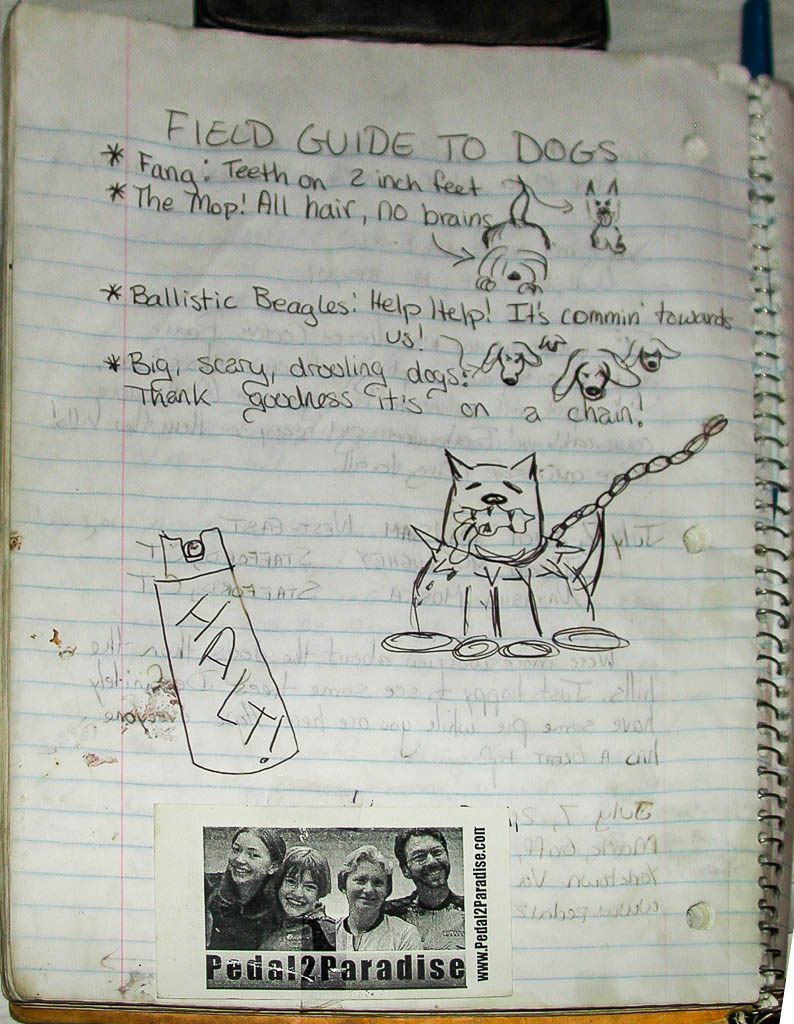 FIELD GUIDE TO DOGS
* Fang: Teeth on 2 inch feet
* The Mop! All hair, no brains
* Ballistic Beagles: Help Help! It's commin' towards
us!
* Big, scary, drooling dogs:
Thank goodness "it's" on a chain!
HALT!
Pedal2Paradise
www.Pedal2Paradise.com